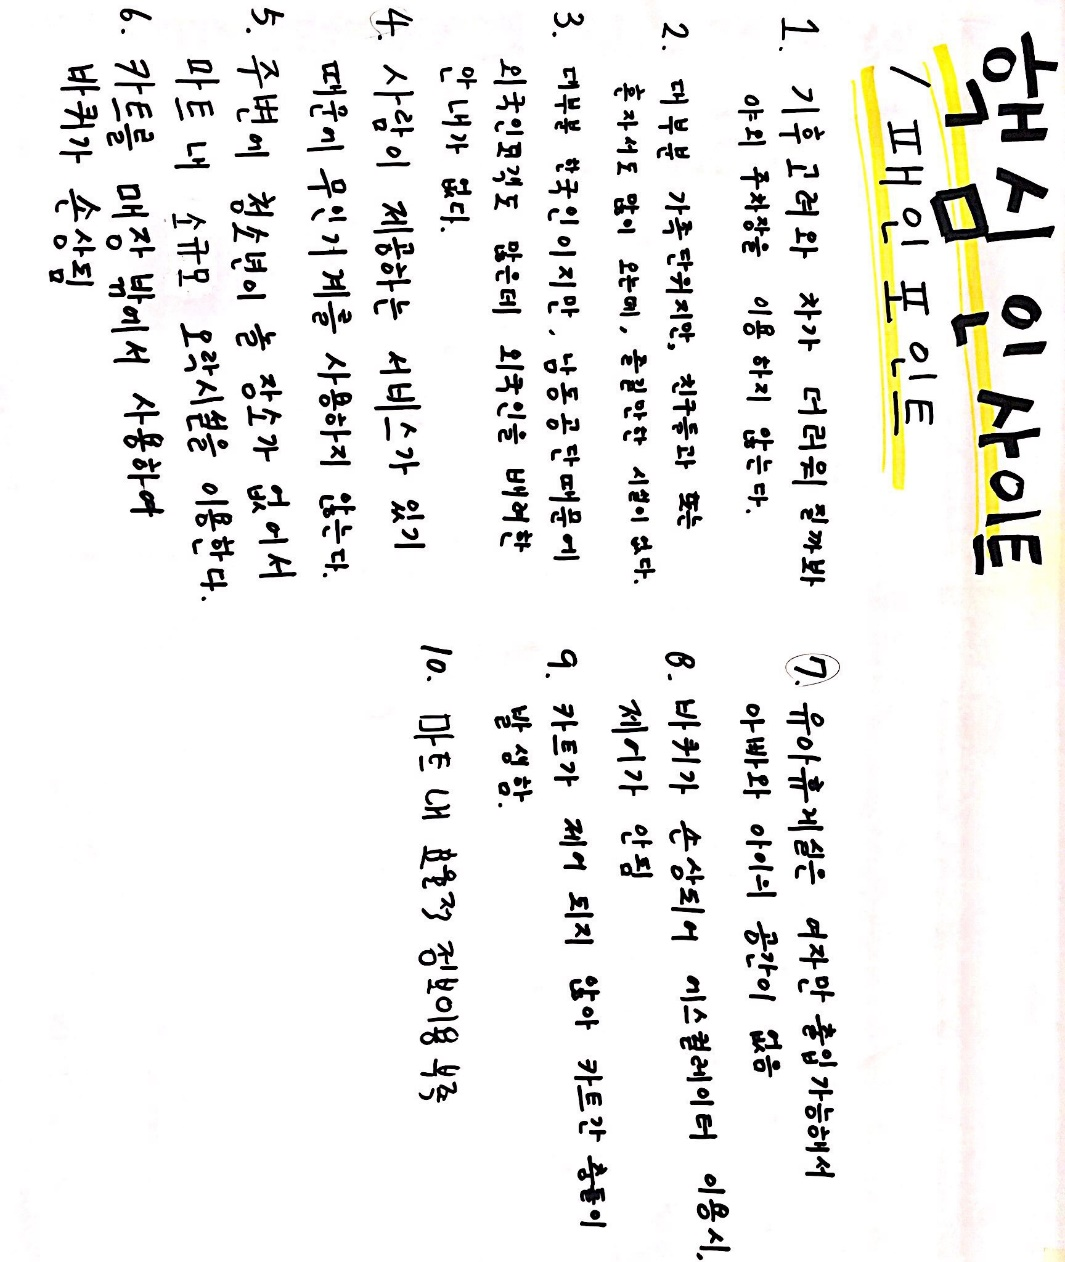 핵심 인사이트
/ 페인 포인트
1. 기후 고려와 차가 더러워 질까봐
야외 주차장을 이용 하지 않는다.
2. 대부분 가족단위지만, 친구들과 또는
혼자서도 많이 오는데, 즐길만한 시설이 없다.
3. 대부분 한국인이지만, 남동공단때문에
외국인고객도 많은데 외국인을 배려한
안내가 없다.
4. 사람이 제공하는 서비스가 있기
때문에 무인기계를 사용하지 않는다.
5. 주변에 청소년이 놀 장소가 없어서
마트 내 소규모 오락시설을 이용한다.
6. 카트를 매장 밖에서 사용하여
바퀴가 손상됨
7. 유아휴게실은 여자만 출입가능해서
아빠와 아이의 공간이 없음
8. 바퀴가 손상되어 에스컬레이터 이용시,
제어가 안됨
9. 카트가 제어 되지 않아 카트간 충돌이
발생함.
10. 마트 내 효율적 정보이용 부족